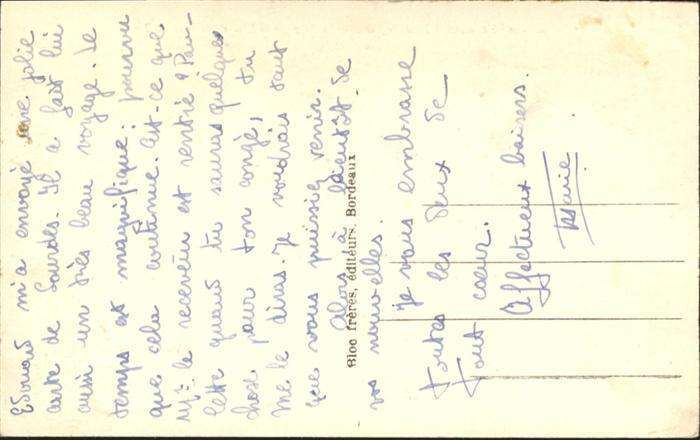 Edouard m'a envoyé une jolie
carte de Lourdes. Il a fait lui
aussi un très beau voyage. Le
temps est magnifique; pourvu
que cela continue. Est-ce que
Mr le receveur est rentré à Pau-
lette quand tu sauras quelque
chose pour ton congé, tu
me le diras. Je voudrais tant
que vous puissiez venir.
Alors à bientôt de
vos nouvelles.
Je vous embrasse
toutes les deux de
tout cœur.
Affectueux baisers.
Marie
Bloc frères, éditeurs, Bordeaux